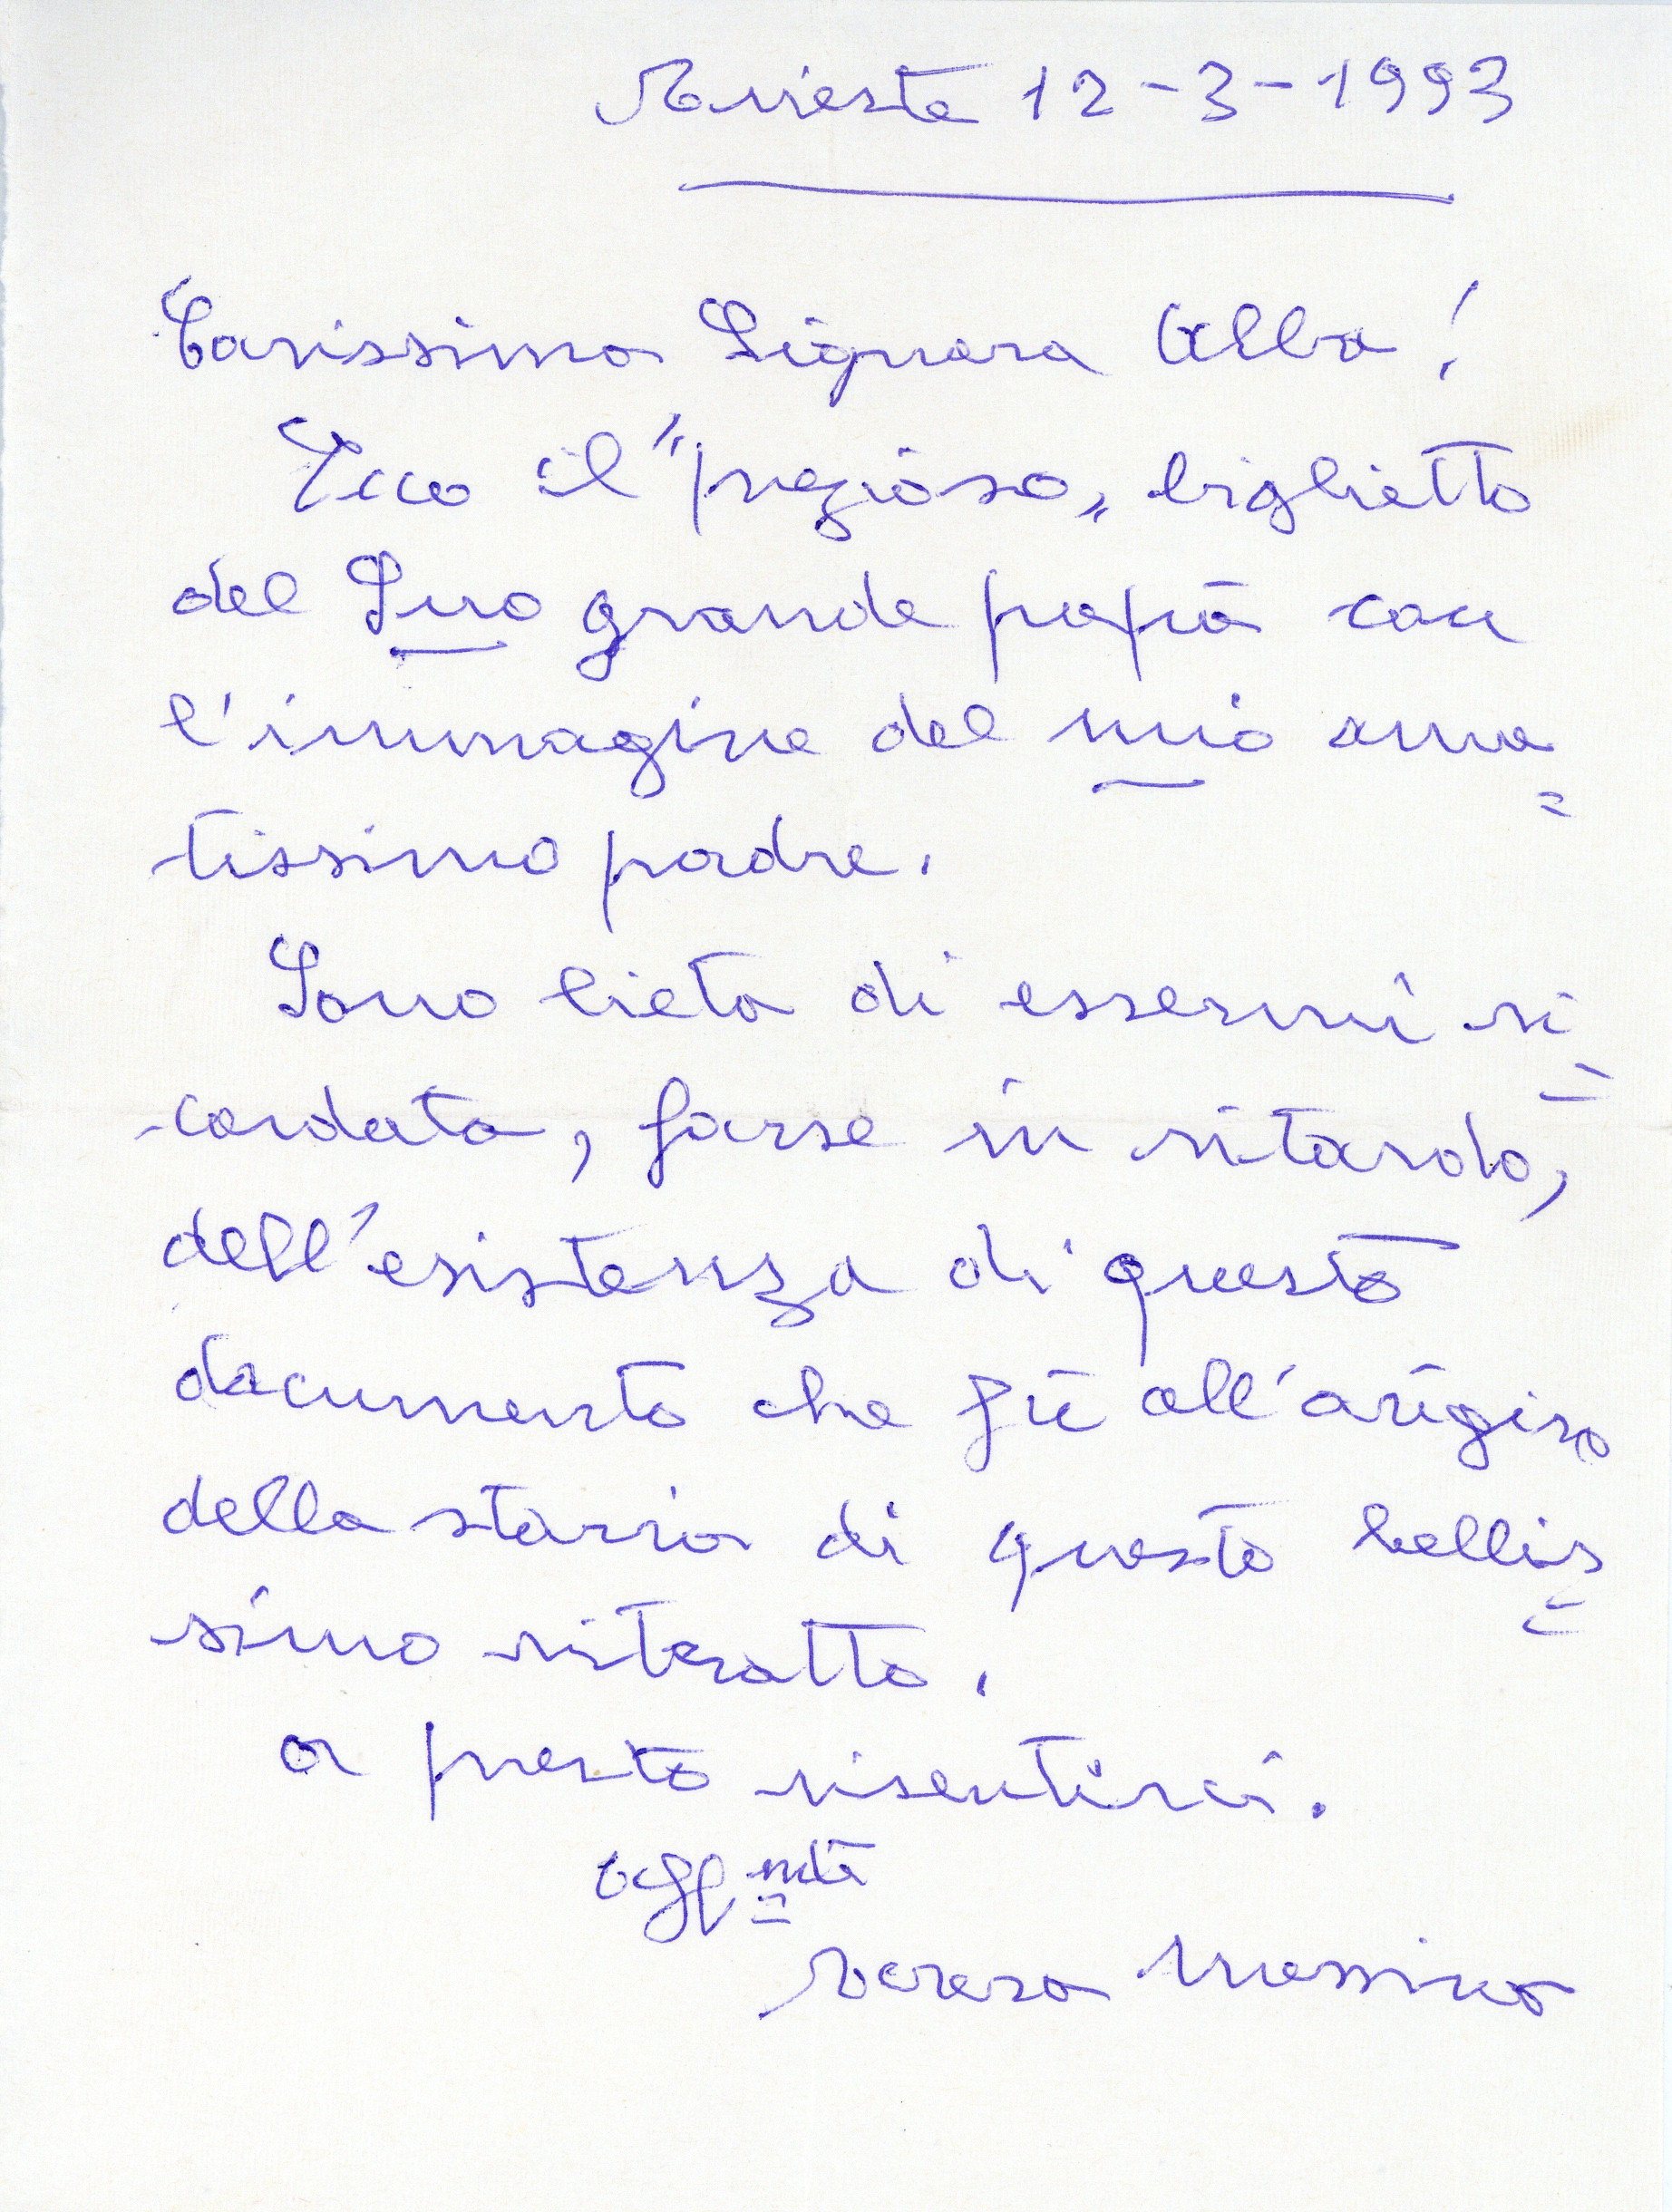 Trieste 12-3-1993
Carissima Signora Alba!
Ecco il "prezioso„ biglietto
del Suo grande papà con
l'immagine del mio ama=
tissimo padre.
Sono lieta di essermi ri=
cordata, forse in ritardo,
dell'esistenza di questo
documento che fù all'origine
della storia di questo bellis=
simo ritratto.
a presto risentirci.
aff.mte